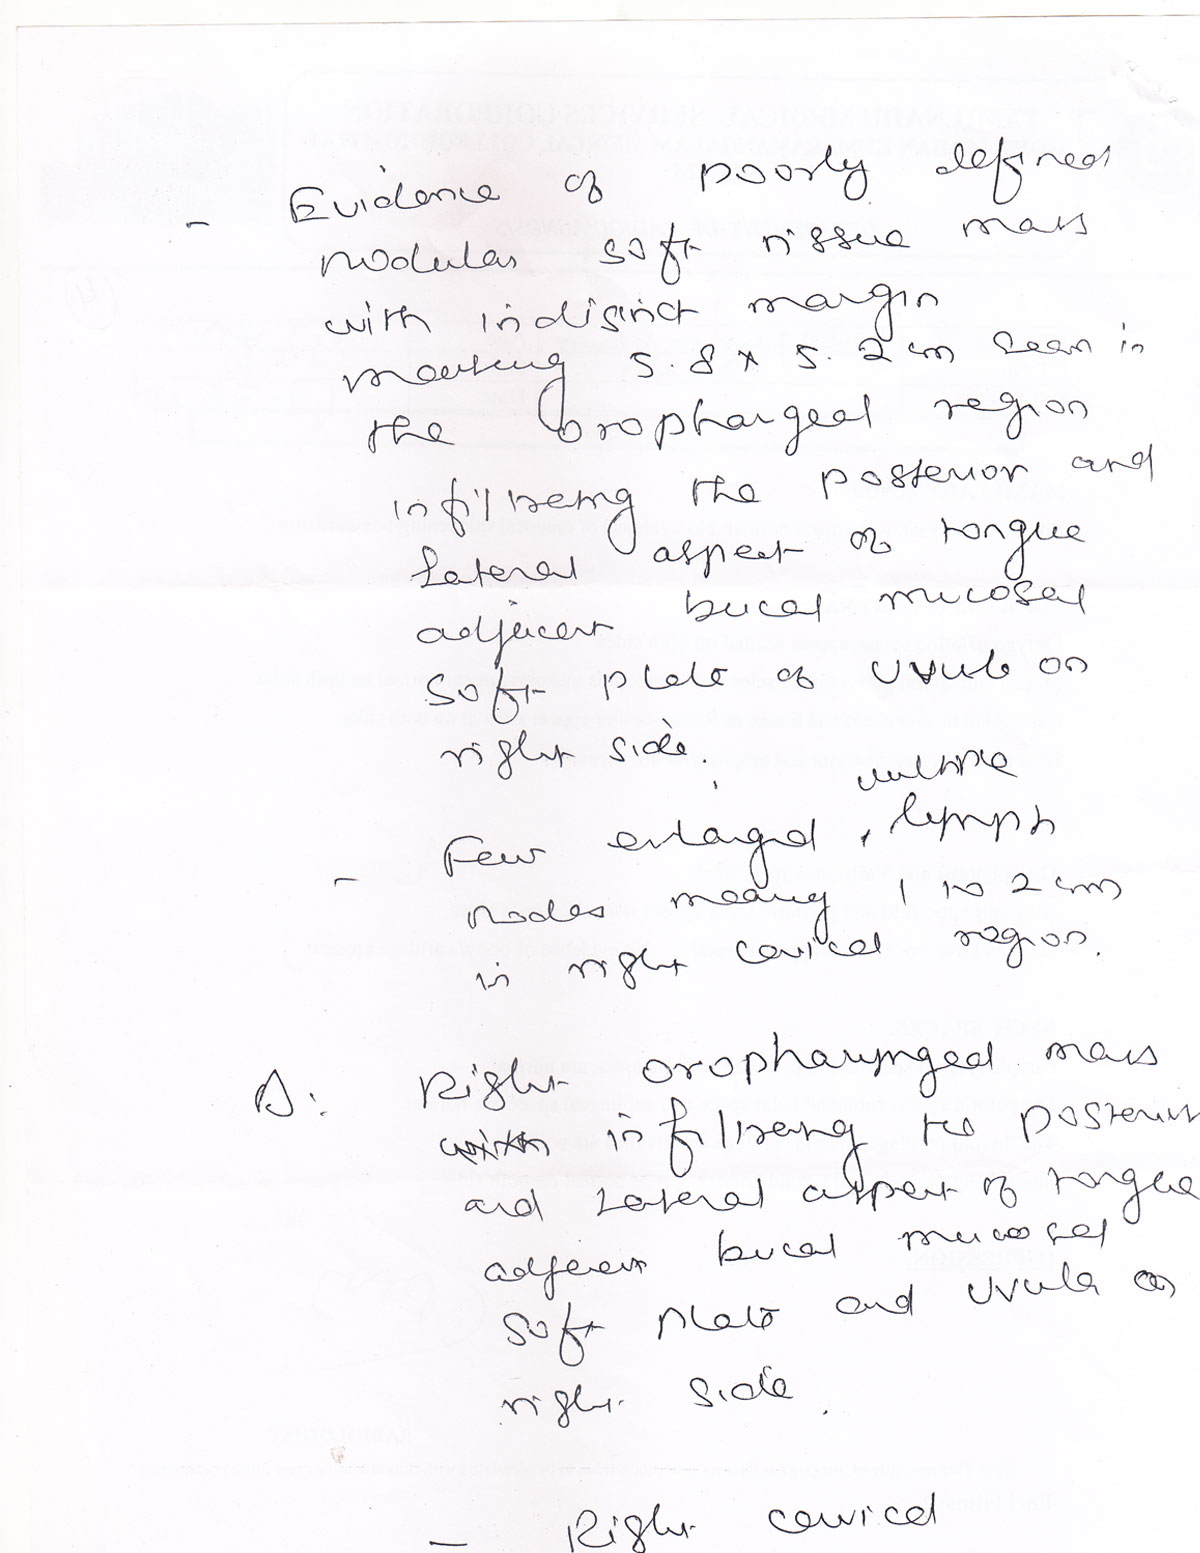 - Evidence of poorly defined
nodular soft tissue mass
with indisinct margin
measuring 5.8 x 5.2 cm seen in
the orophargeal region
infiltreing the posterior and
Lateral aspect of tongue
adjecent bucal mucosal
Soft plate of uvula on
right side.
multiple
- Few enlarged, lymph
nodes measuring 1 to 2 cm
in right cervical region.
Right oropharyngeal mass
with infiltreing the posterior
and Lateral aspect of tongue
adjecent bucal mucosal
Soft plate and uvula on
right side.
- Right cervical